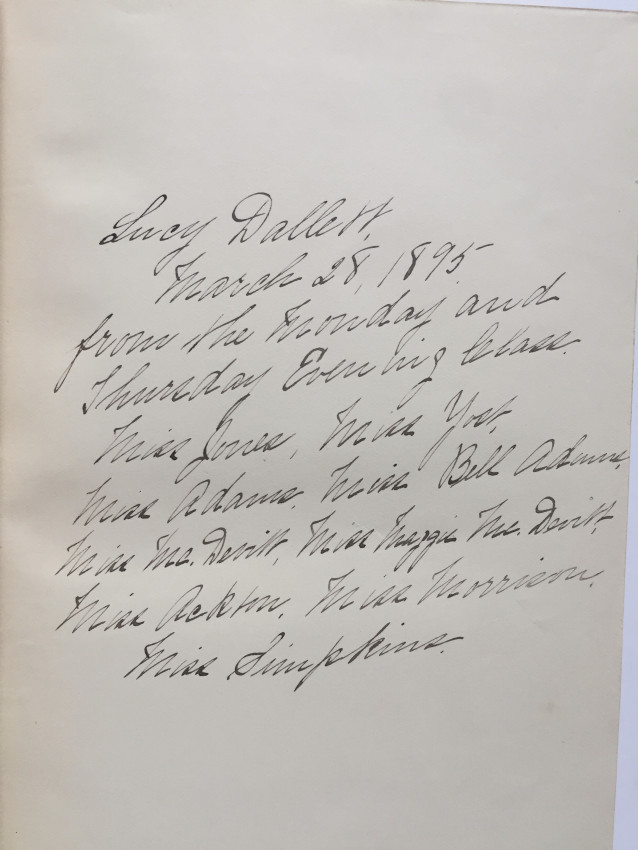 Lucy Dallett,
March 28, 1895
from the Monday and
Thursday Evening Class.
Miss Jones, Miss Yost,
Miss Adams, Miss Bell Adams,
Miss Mc. Devitt, Miss Maggie Mc. Devitt,
Miss Ackton, Miss Morrison,
Miss Simpkins.